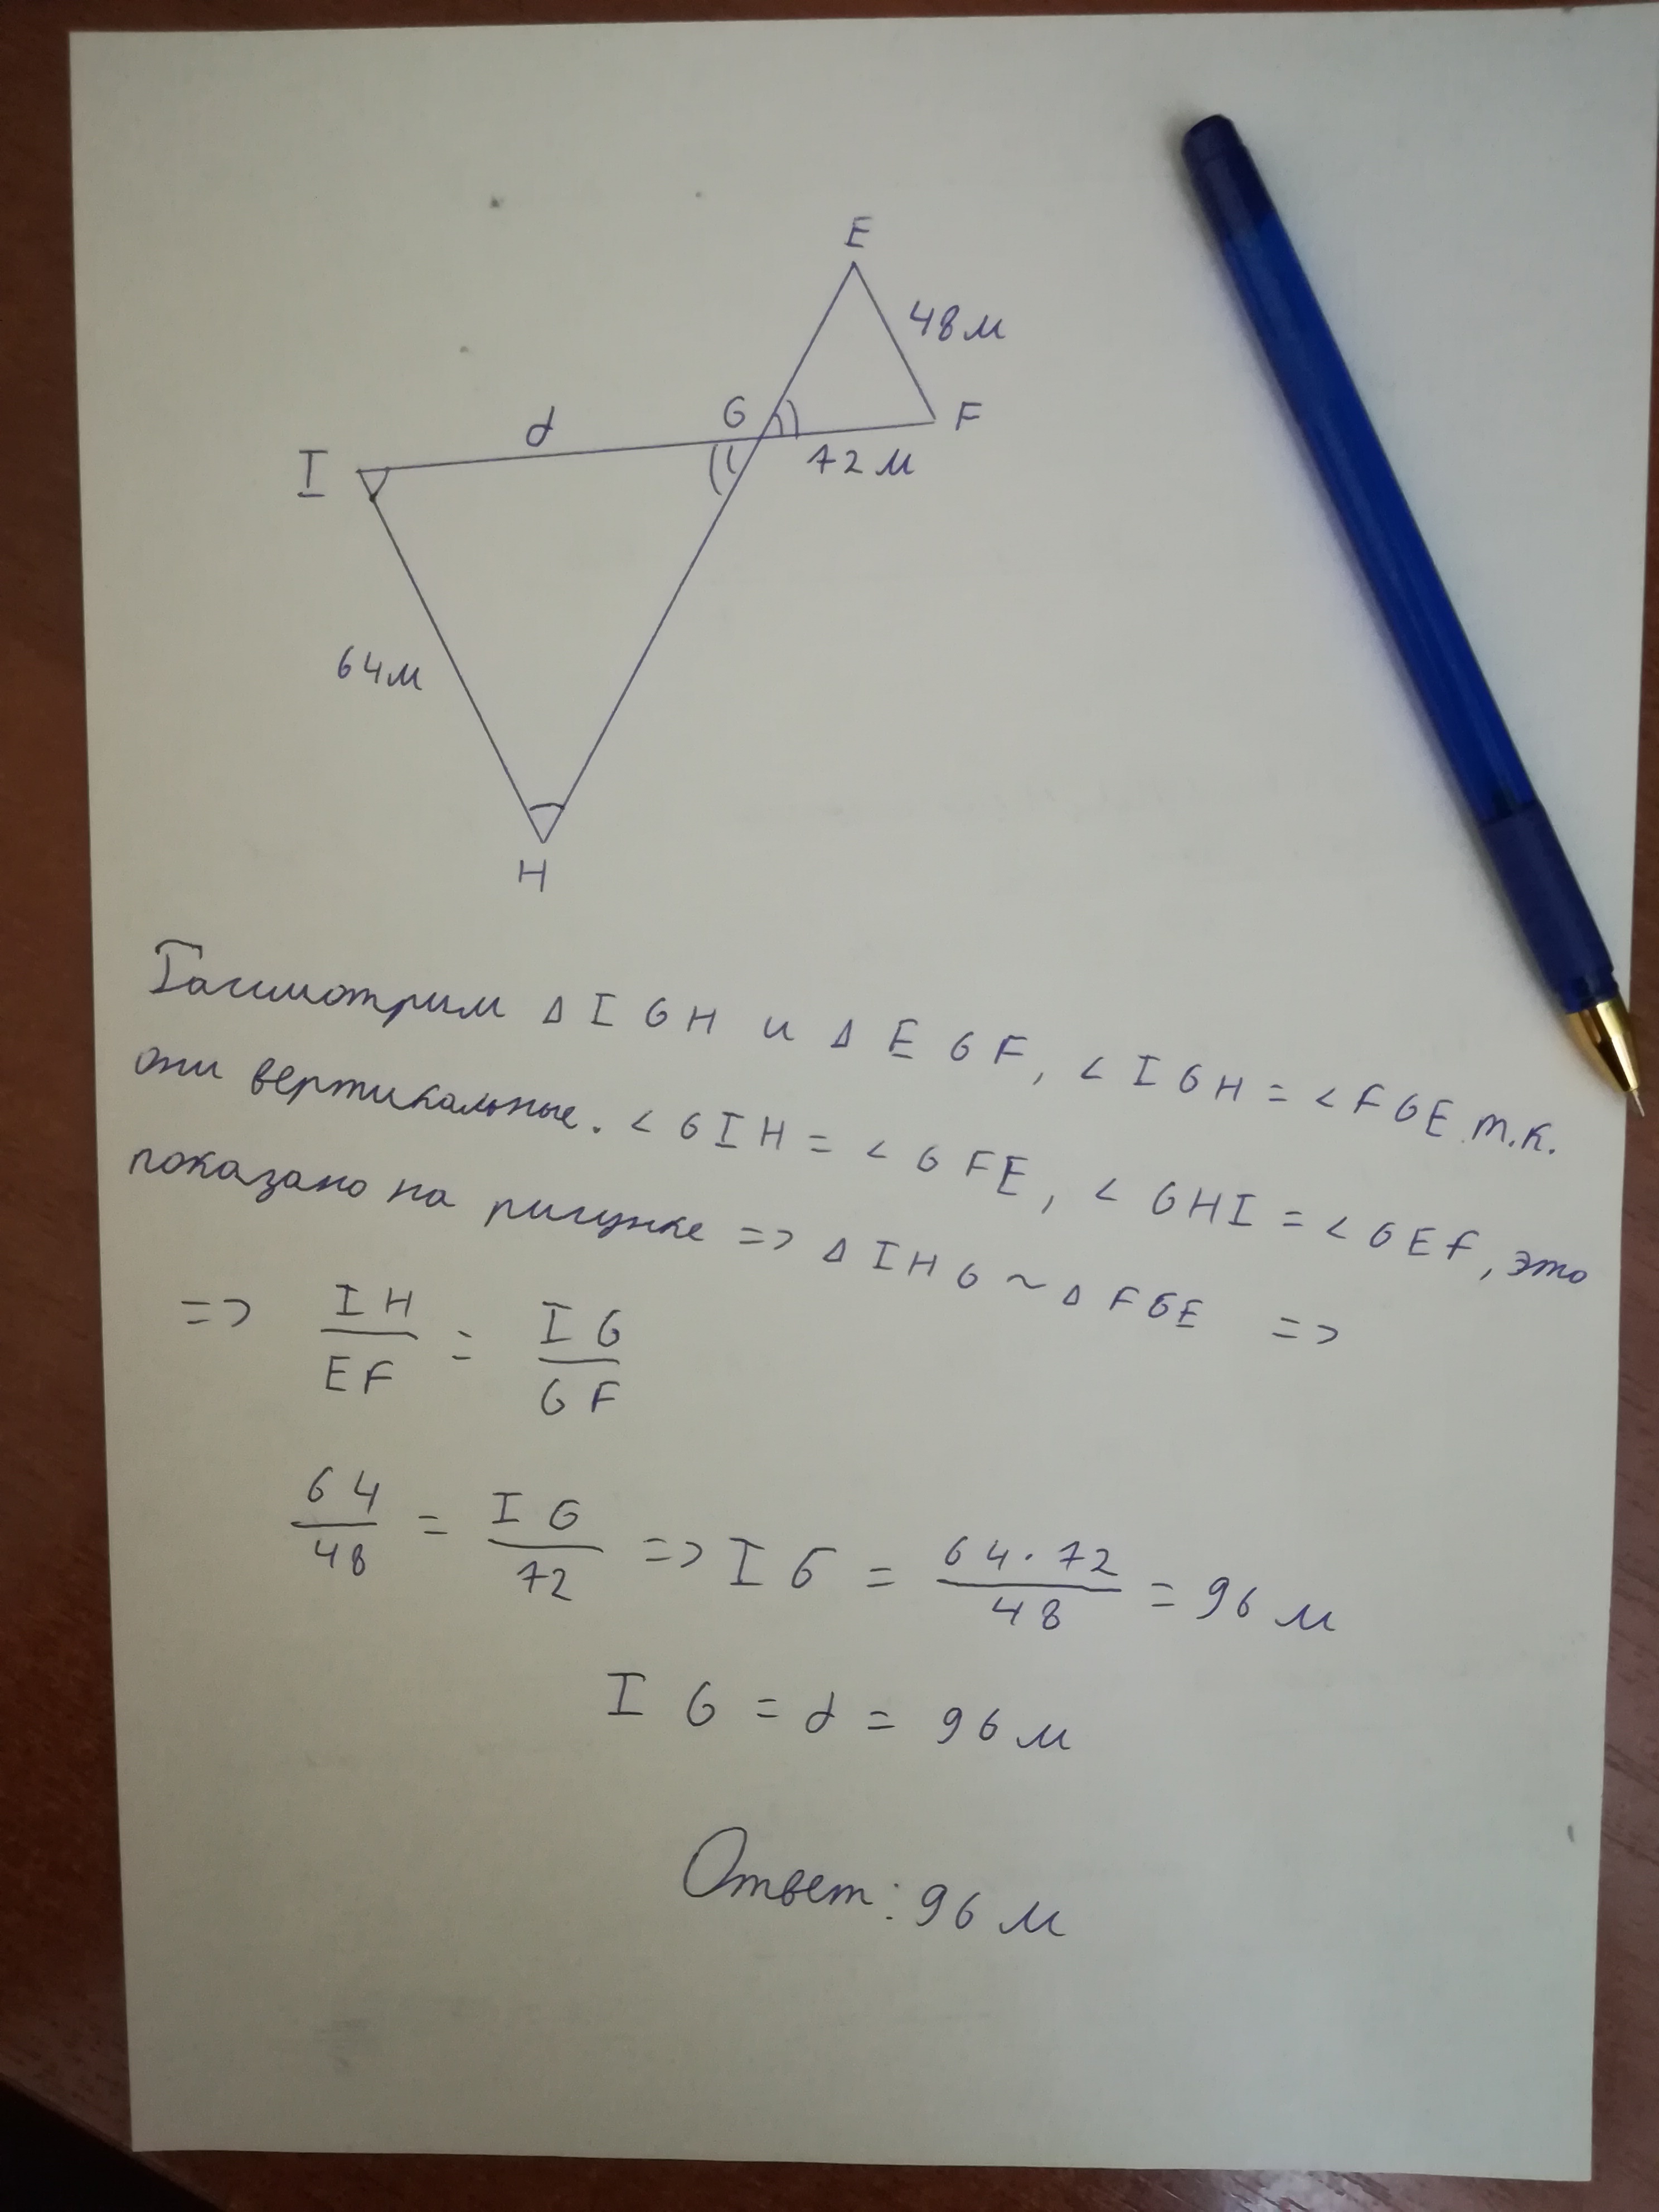 E
48м
G
F
d
72м
I
64м
H
Рассмотрим Δ I G H и Δ E G F, < I G H = < F G E т.к.
они вертикальные. < G I H = < G F E, < G H I = < G E F, это
показано на рисунке => Δ I H G ~ Δ F G E =>
=> I H / E F = I G / G F
64 / 48 = I G / 72 => I G = 64 · 72 / 48 = 96 м
I G = d = 96 м
Ответ: 96 м